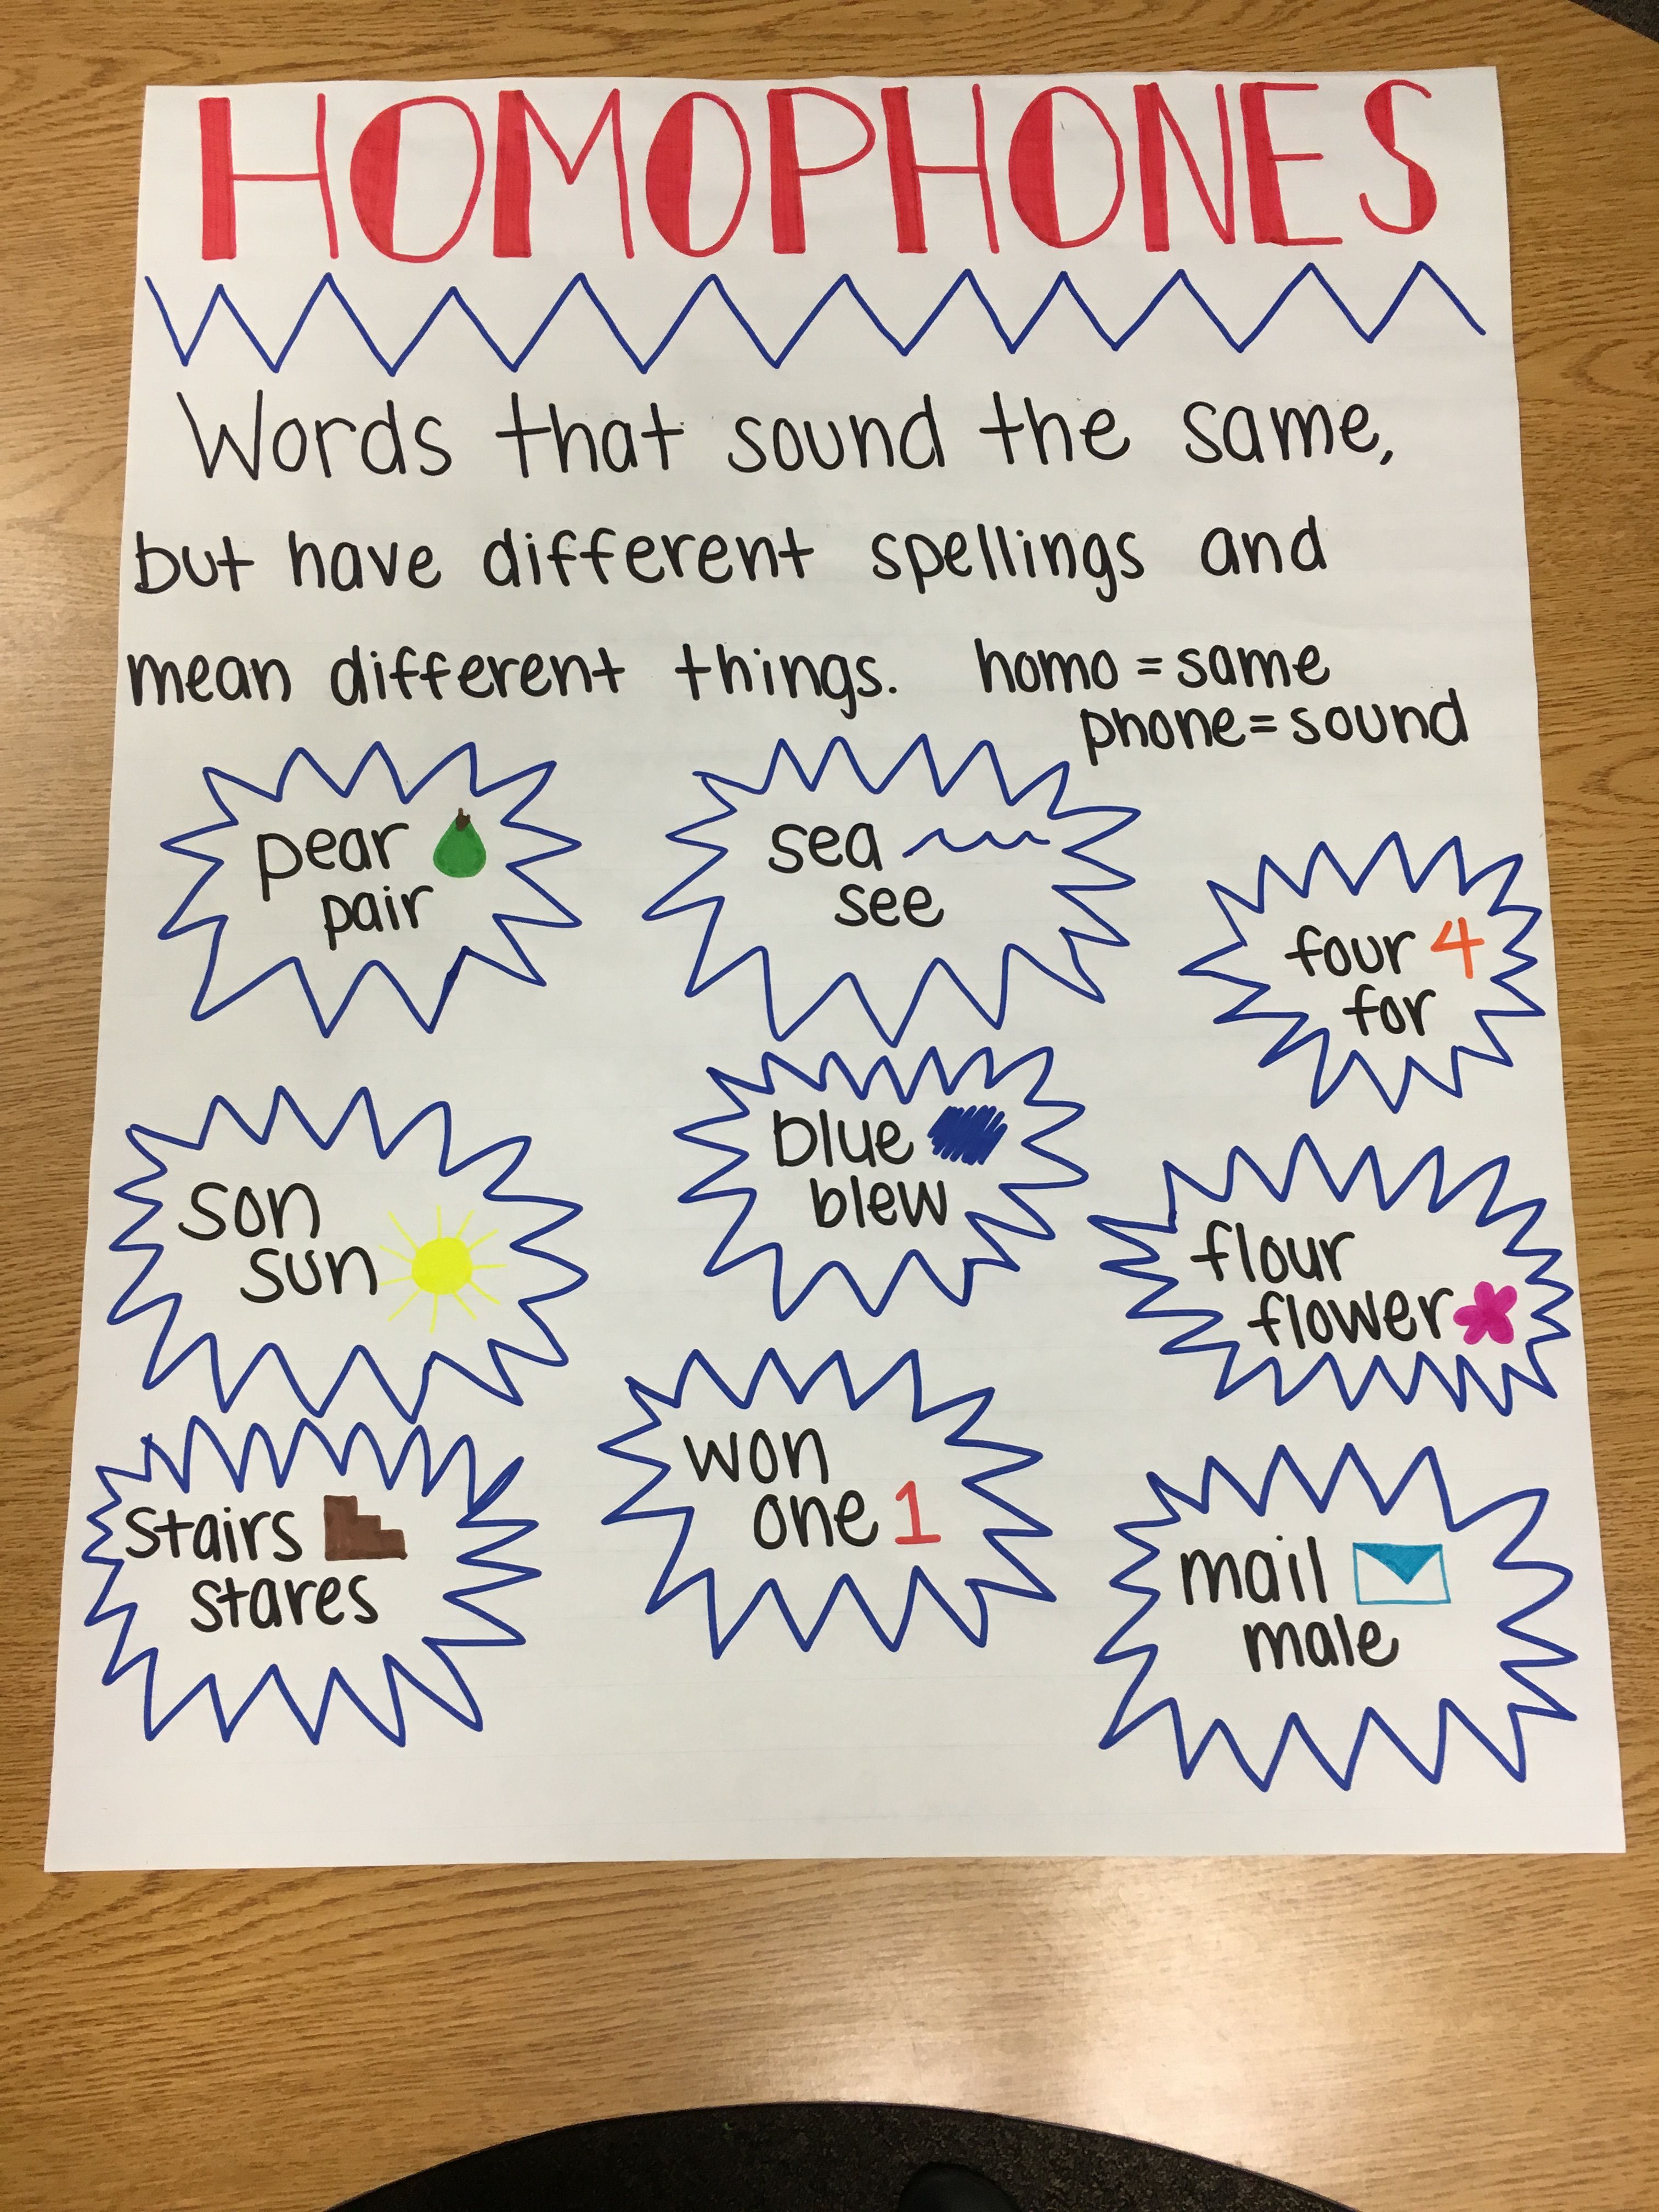 HOMOPHONES
Words that sound the same,
but have different spellings and
mean different things.
homo = same
phone = sound
pear
pair
sea
see
four 4
for
son
sun
blue
blew
flour
flower
stairs
stares
won
one 1
mail
male